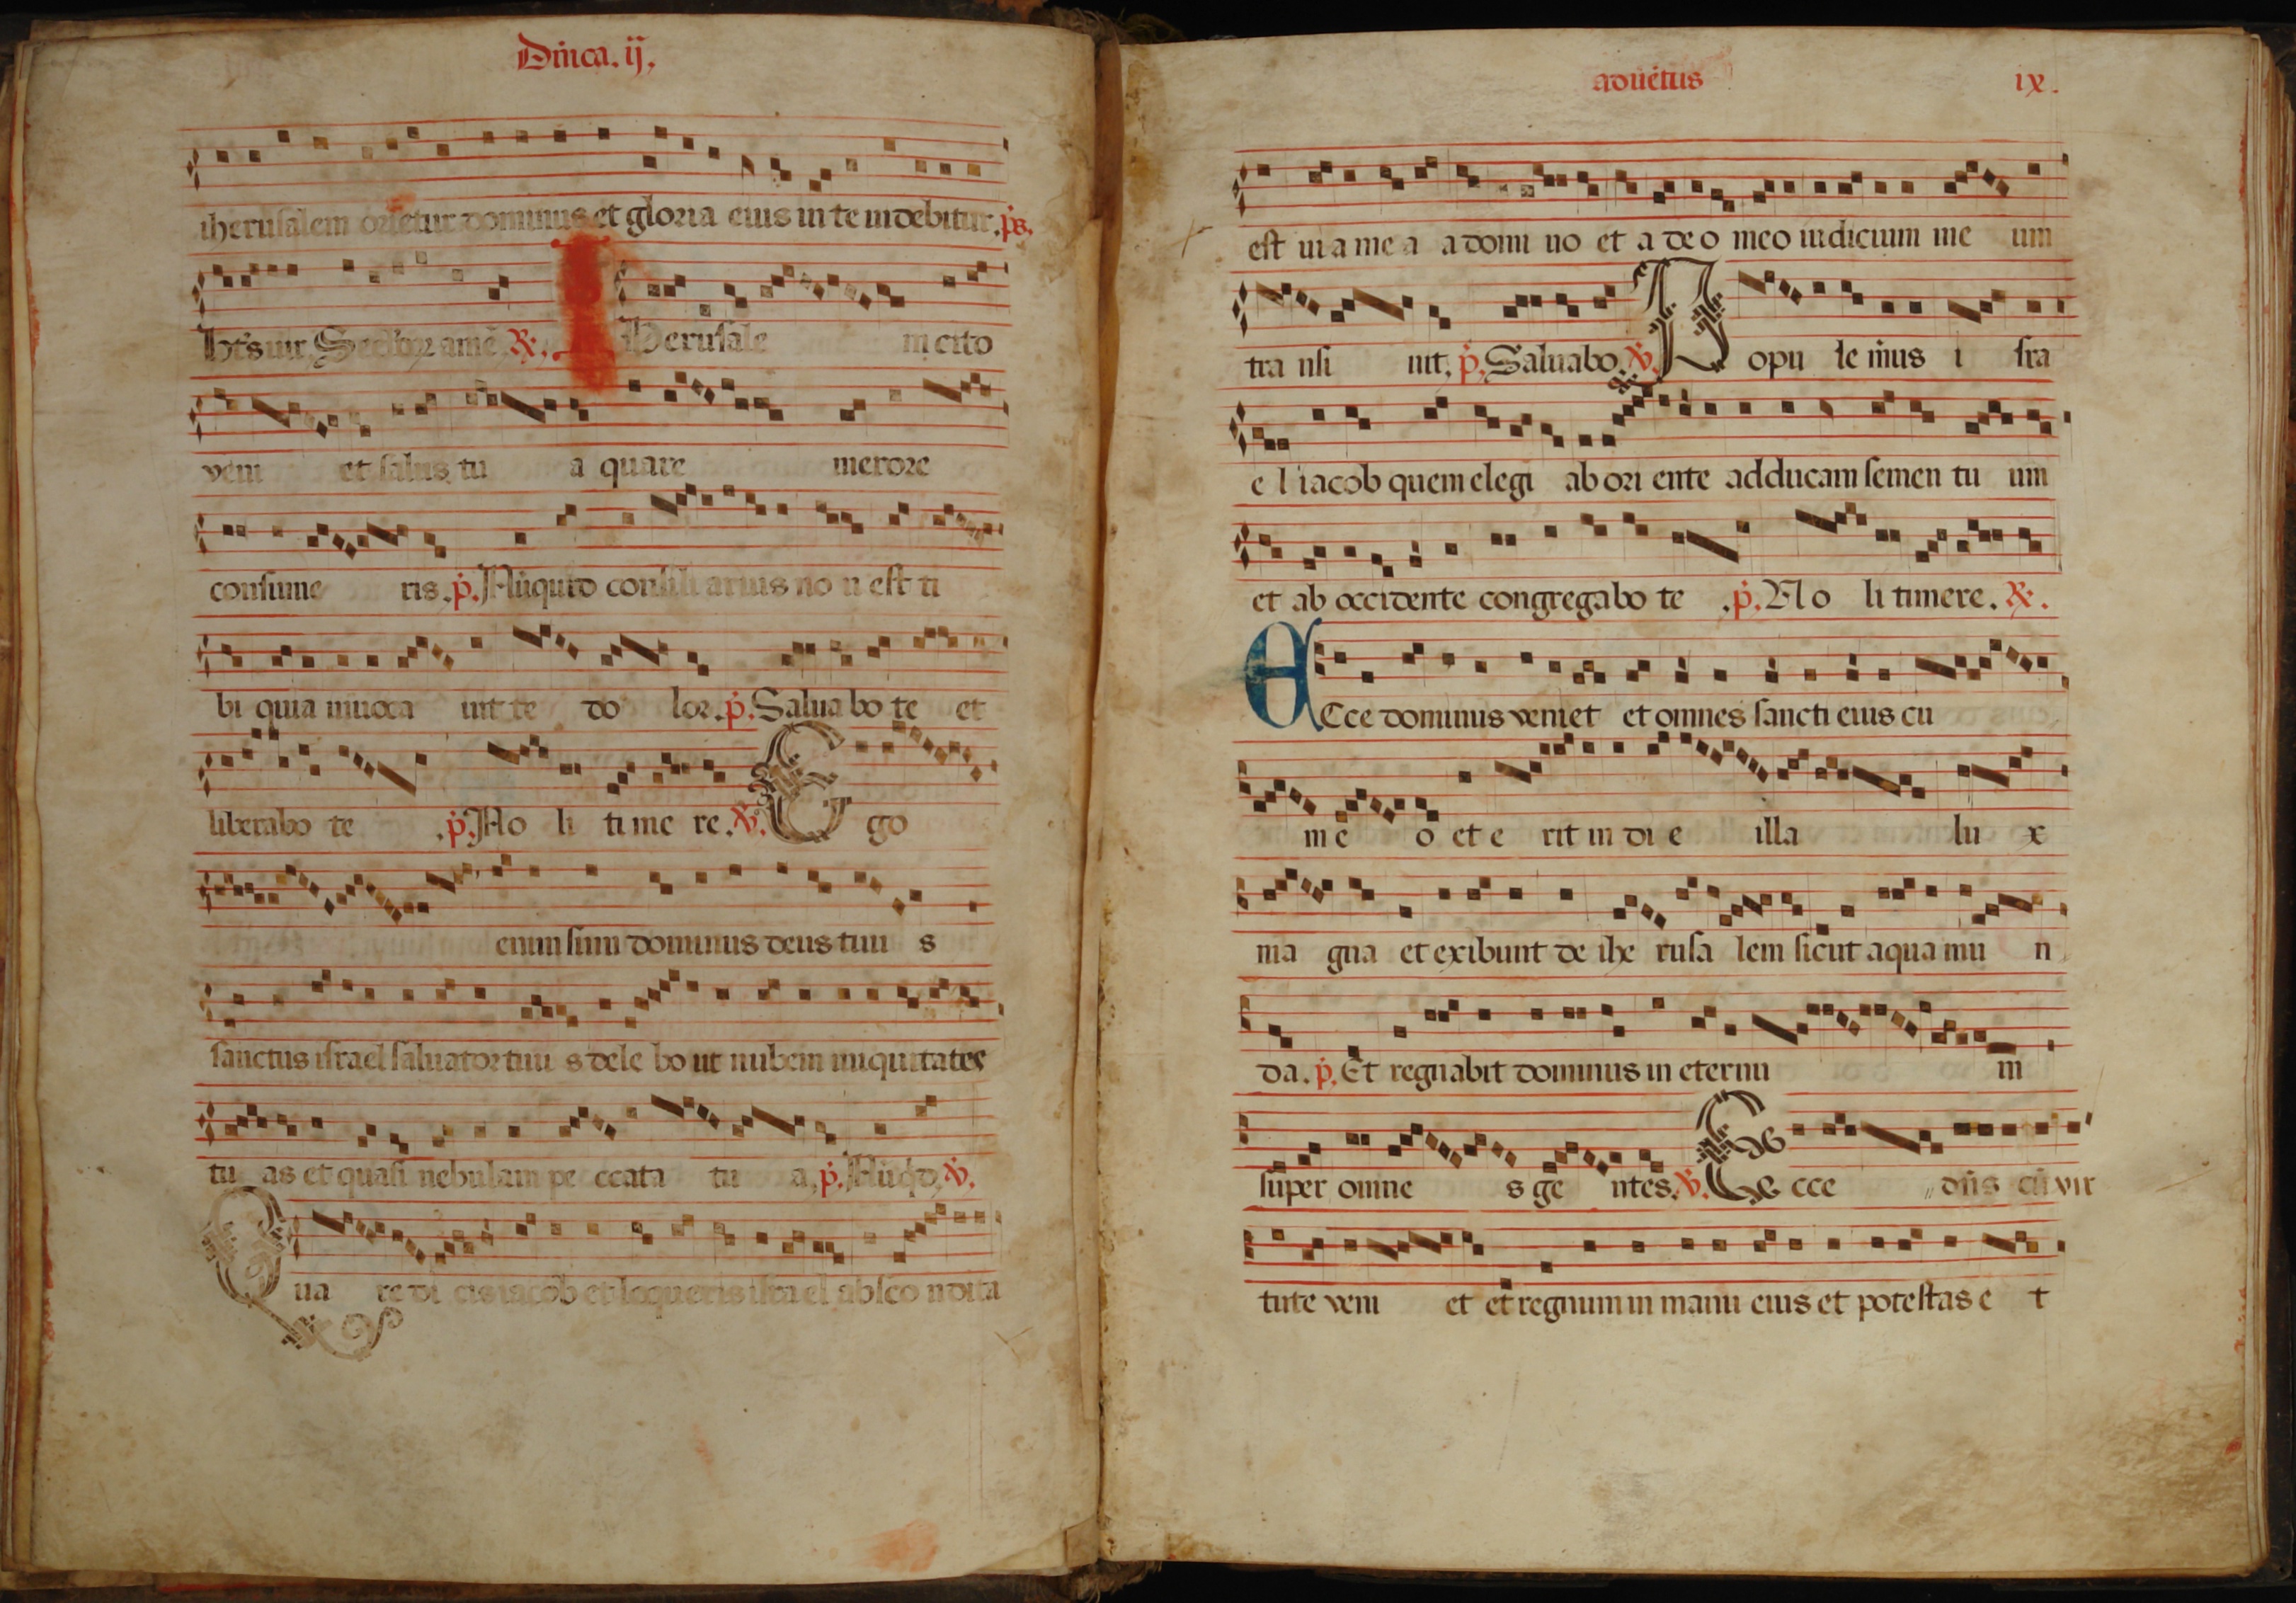 Dnica. ij.
iherusalem orietur dominus et gloria eius in te uidebitur. ps.
Bts uir. Seculor amē. R. Iherusale m cito
veni et salus tu a quare merore
consume ris. p. Nūquid consili arius no n est ti
bi quia innoua uit te do lor. p. Salua bo te et
liberabo te . p. No li time re. V. Ego
enim sum dominus deus tuu s
sanctus israel saluator tuu s dele bo ut nubem iniquitates
tu as et quasi nebulam pe ccata tu a, p. Nūqd, V.
Qua re di cis iacob et loqueris isra el absco ndita
aduētus ix.
est uia me a a domi no et a de o meo iudicium me um
tra nsi uit, p. Saluabo. V. Popu le mius i sra
e l iacob quem elegi ab ori ente adducam semen tu um
et ab occidente congregabo te . p. No li timere. R.
ECce dominus veniet et omnes sancti eius cu
m e o et e rit in di e illa lu x
ma gna et exibunt de ihe rusa lem sicut aqua mu n
da. p. Et regnabit dominus in eternu m
super omne s ge ntes. V. Ecce dn̄s cū vir
tute veni et et regnum in manu eius et potestas e t